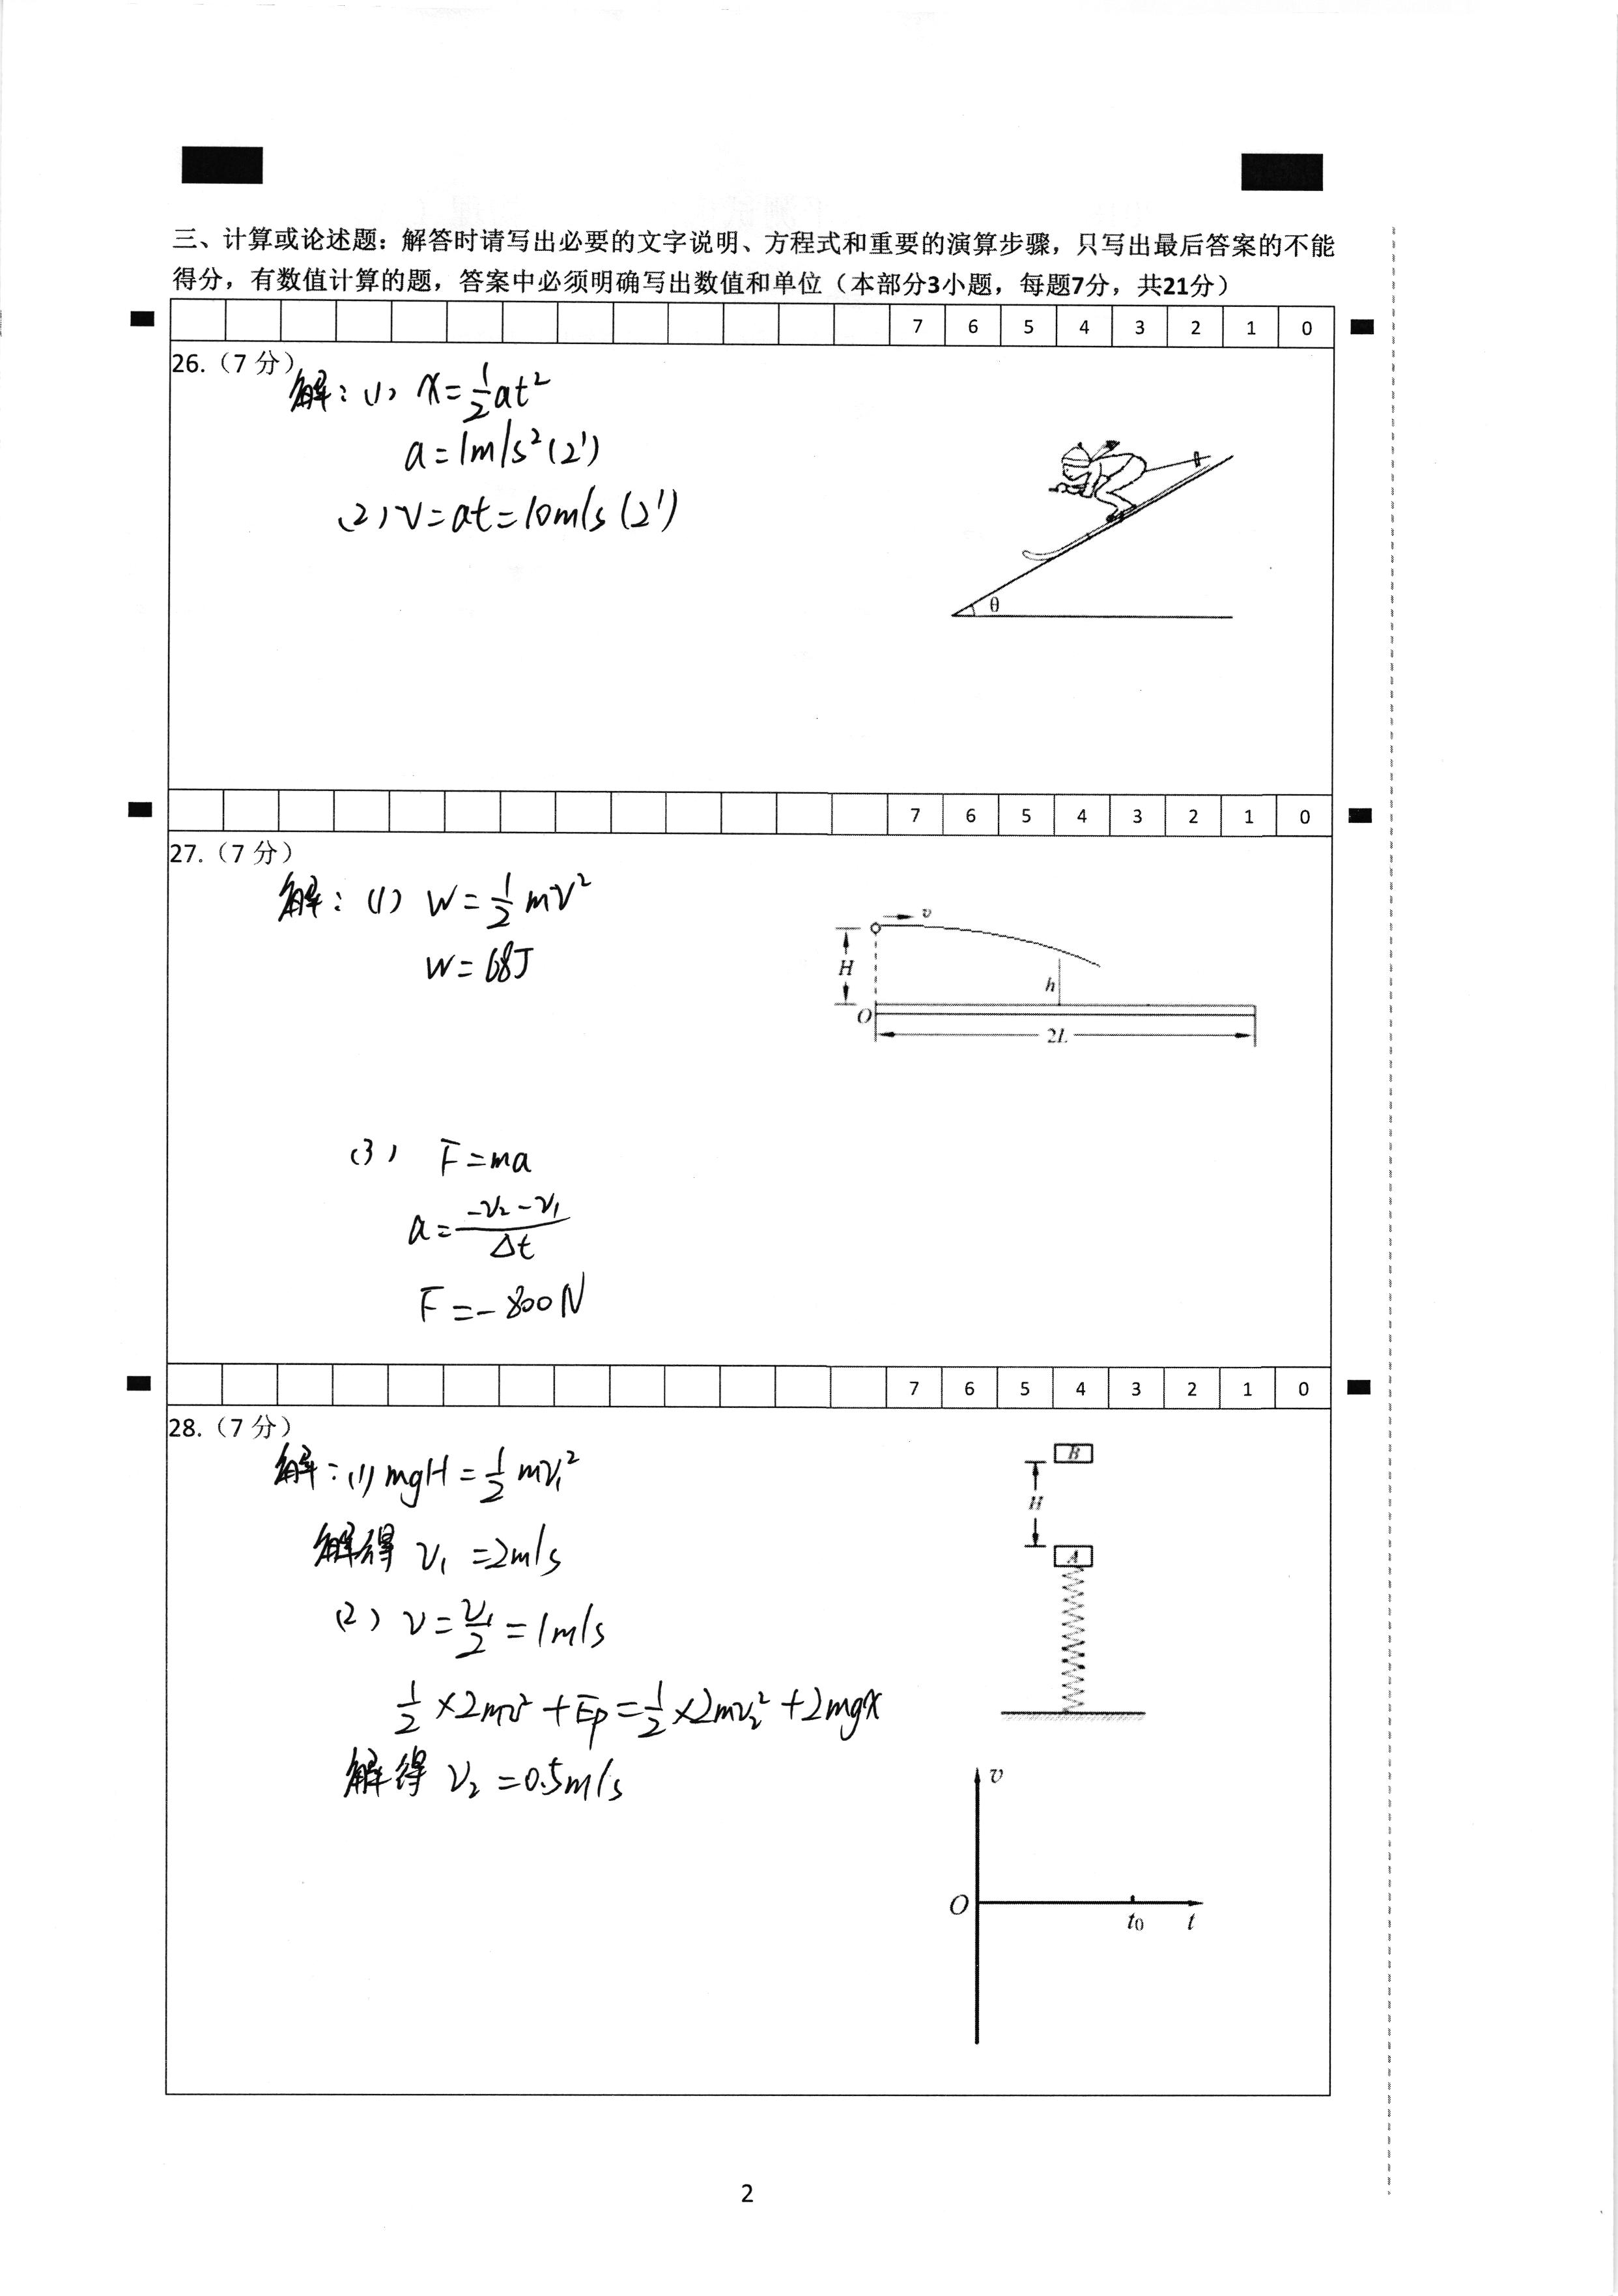 三、计算或论述题：解答时请写出必要的文字说明、方程式和重要的演算步骤，只写出最后答案的不能
得分，有数值计算的题，答案中必须明确写出数值和单位（本部分3小题，每题7分，共21分）
7 6 5 4 3 2 1 0
26.（7 分）
解：(1) x=½at²
a=1m/s²(2')
(2) v=at=10m/s (2')
θ
7 6 5 4 3 2 1 0
27.（7 分）
解：(1) W=½mv²
W=68J
v
H
h
O
2L
(3) F=ma
a=(-v₂-v₁)/Δt
F=-800N
7 6 5 4 3 2 1 0
28.（7 分）
解：(1) mgH=½mv₁²
解得 v₁=2m/s
(2) v=v₁/2=1m/s
½×2mv²+Ep=½×2mv₂²+2mgx
解得 v₂=0.5m/s
B
H
A
v
O
t₀ t
2